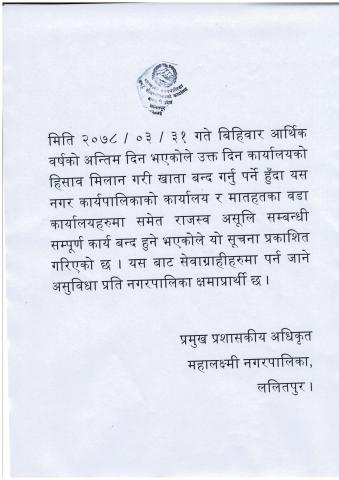 मिति २०७८ / ०३ / ३१ गते बिहिवार आर्थिक
वर्षको अन्तिम दिन भएकोले उक्त दिन कार्यालयको
हिसाव मिलान गरी खाता बन्द गर्नु पर्ने हुँदा यस
नगर कार्यपालिकाको कार्यालय र मातहतका वडा
कार्यालयहरुमा समेत राजस्व असूलि सम्बन्धी
सम्पूर्ण कार्य बन्द हुने भएकोले यो सूचना प्रकाशित
गरिएको छ । यस बाट सेवाग्राहीहरुमा पर्न जाने
असुविधा प्रति नगरपालिका क्षमाप्रार्थी छ ।
प्रमुख प्रशासकीय अधिकृत
महालक्ष्मी नगरपालिका,
ललितपुर ।